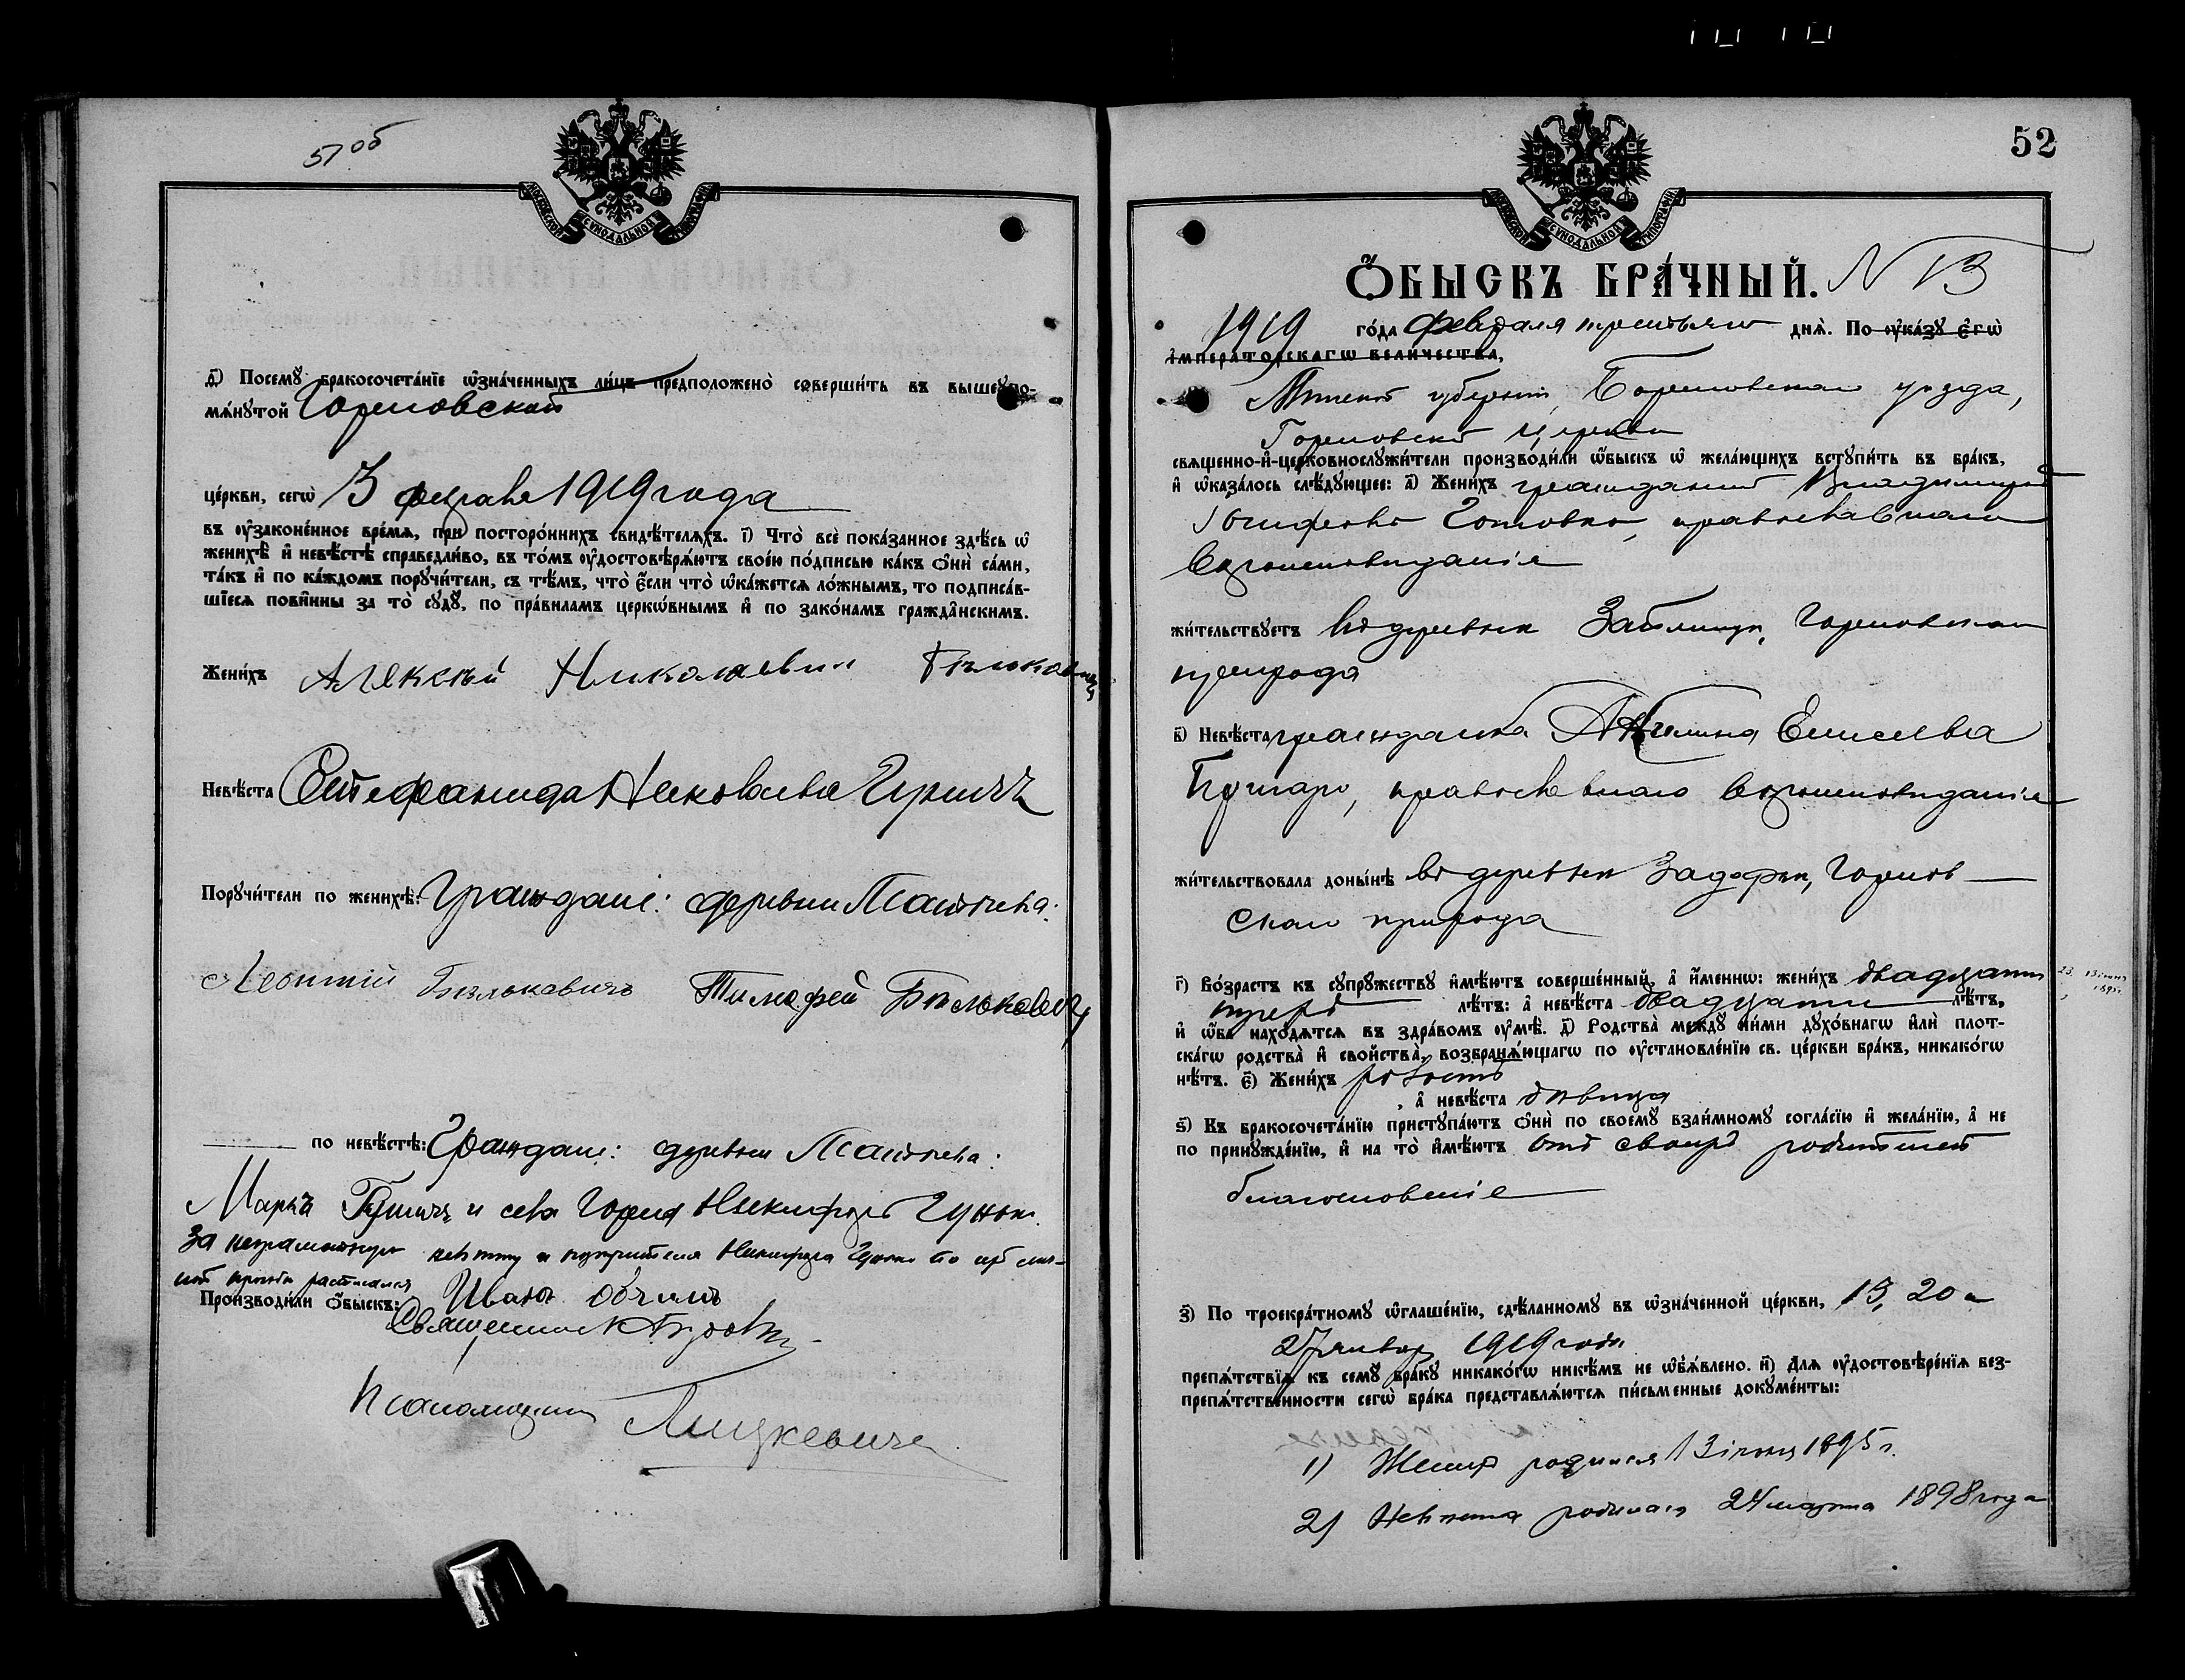 51 об
МОСКОВСКОЙ СѴНОДАЛЬНОЙ ТИПОГРАФІИ
д҃) Посемꙋ̀ бракосочета́нїе ѡ҆зна́ченныхъ ли́цъ предположено̀ соверши́ть въ вышеꙋпо-
мѧ́нꙋтой Горновской
це́ркви, сегѡ̀ 3 февраля 1919 года
въ ᲂу҆зако́ненное вре́мѧ, при посторо́ннихъ свидѣ́телѧхъ. і҃) Что̀ всѐ пока́занное здѣ́сь ѡ҆
женихѣ̀ и҆ невѣ́стѣ справедли́во, въ то́мъ ᲂу҆достовѣрѧ́ютъ свое́ю по́дписью ка́къ ѻ҆нѝ са́ми,
та́къ и҆ по ка́ждомъ порꙋчи́тели, съ тѣ́мъ, что̀ є҆́сли что̀ ѡ҆ка́жетсѧ ло́жнымъ, то подписа́в-
шїесѧ пови́нны за то̀ сꙋдꙋ̀, по пра́виламъ церко́внымъ и҆ по зако́намъ гражда́нскимъ.
Жени́хъ Алексѣй Николаевич Бѣлькович
Невѣ́ста Стефанида Николаева
Порꙋчи́тели по женихѣ̀: Граждане: деревни
Леонтій Бѣлькевичъ Тимофей Бѣлькович
по невѣ́стѣ: Граждане: деревни
Марка и села Горна Никифоръ Гунько.
За неграмотную невѣсту и поручителя Никифора Гунько по их лич-
ной просьбѣ расписался
Производи́ли ѻ҆́быскъ: Иванъ
Священник
Псаломщикъ Лицкевичъ
52
МОСКОВСКОЙ СѴНОДАЛЬНОЙ ТИПОГРАФІИ
Ѻ҆́БЫСКЪ БРА́ЧНЫЙ. N 13
1919 го́да февраля третьяго днѧ̀. По ᲂу҆ка́зꙋ є҆гѡ̀
і҆мпера́торскагѡ вели́чества,
Минской губерніи, Борисовскаго уѣзда,
Горновской церкви
свѧще́нно-и҆-церковнослꙋжи́тели производи́ли ѡ҆́быскъ ѡ҆ жела́ющихъ встꙋпи́ть въ бра́къ,
и҆ ѡ҆каза́лось слѣ́дꙋющее: а҃) Жени́хъ гражданинъ Владимиръ
Іосифовъ Готовко, православнаго
вѣроисповѣданія
жи́тельствꙋетъ въ деревнѣ Горновскаго
прихода
в҃) Невѣ́ста гражданка Акилина Елисеева
православнаго вѣроисповѣданія
жи́тельствовала доны́нѣ въ деревнѣ Горнов-
скаго прихода
г҃) Во́зрастъ къ сꙋпрꙋ́жествꙋ и҆мѣ́ютъ соверше́нный, а҆ и҆́менно: жени́хъ двадцати
лѣ́тъ: а҆ невѣ́ста двадцати лѣ́тъ,
и҆ ѻ҆́ба нахо́дѧтсѧ въ здра́вомъ ᲂу҆мѣ̀. д҃) Родства̀ междꙋ̀ ни́ми дꙋхо́внагѡ и҆лѝ плот-
ска́гѡ родства̀ и҆ свойства̀, возбранѧ́ющагѡ по ᲂу҆становле́нїю св. це́ркви бра́къ, никако́гѡ
нѣ́тъ. є҃) Жени́хъ холостъ
, а҆ невѣ́ста дѣвица
ѕ҃) Къ бракосочета́нїю пристꙋпа́ютъ ѻ҆нѝ по своемꙋ̀ взаи́мномꙋ согла́сїю и҆ жела́нїю, а҆ не
по принꙋжде́нїю, и҆ на то̀ и҆мѣ́ютъ отъ своихъ родителей
благословеніе
з҃) По троекра́тномꙋ ѡ҆глаше́нїю, сдѣ́ланномꙋ въ ѡ҆зна́ченной це́ркви, 13, 20 и
27 январ 1919 года
препѧ́тствїѧ къ семꙋ̀ бра́кꙋ никако́гѡ никѣ́мъ не ѡ҆б̾ѧ́влено. и҃) Длѧ ᲂу҆достовѣре́нїѧ без-
препѧ́тственности сегѡ̀ бра́ка представлѧ́ютсѧ пи́сьменные докꙋме́нты:
1) Женихъ родился 13 іюня 1895 г.
2) Невѣста родилась 24 марта 1898 года